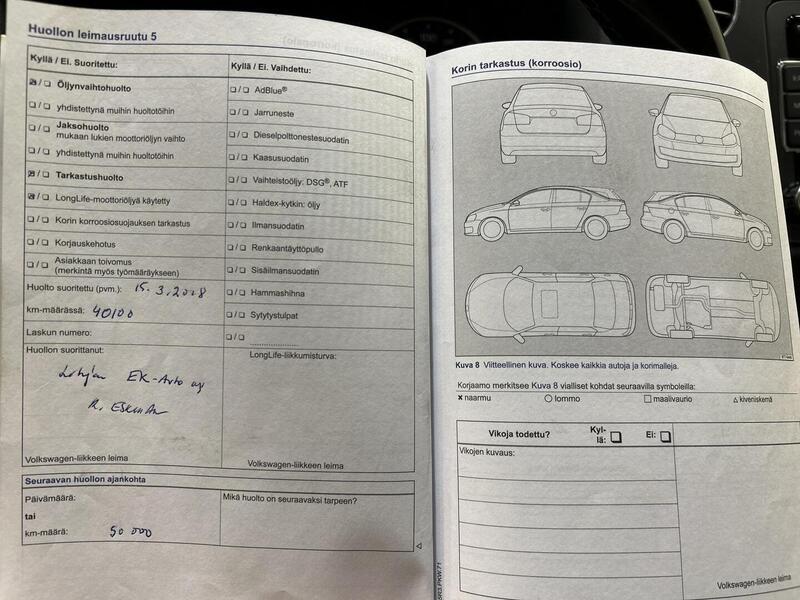 Huollon leimausruutu 5
Kyllä / Ei. Suoritettu:
☒ / ❑ Öljynvaihtohuolto
❑ / ❑ yhdistettynä muihin huoltotöihin
❑ / ❑ Jaksohuolto
mukaan lukien moottoriöljyn vaihto
❑ / ❑ yhdistettynä muihin huoltotöihin
☒ / ❑ Tarkastushuolto
☒ / ❑ LongLife-moottoriöljyä käytetty
❑ / ❑ Korin korroosiosuojauksen tarkastus
❑ / ❑ Korjauskehotus
❑ / ❑ Asiakkaan toivomus
(merkintä myös työmääräykseen)
Huolto suoritettu (pvm.): 15.3.2018
km-määrässä: 40100
Laskun numero:
Huollon suorittanut:
Lohjan EK-Auto oy
Volkswagen-liikkeen leima
Kyllä / Ei. Vaihdettu:
❑ / ❑ AdBlue®
❑ / ❑ Jarruneste
❑ / ❑ Dieselpolttonestesuodatin
❑ / ❑ Kaasusuodatin
❑ / ❑ Vaihteistoöljy: DSG®, ATF
❑ / ❑ Haldex-kytkin: öljy
❑ / ❑ Ilmansuodatin
❑ / ❑ Renkaantäyttöpullo
❑ / ❑ Sisäilmansuodatin
❑ / ❑ Hammashihna
❑ / ❑ Sytytystulpat
❑ / ❑ ....................
LongLife-liikkumisturva:
Volkswagen-liikkeen leima
Seuraavan huollon ajankohta
Päivämäärä:
tai
km-määrä: 50 000
Mikä huolto on seuraavaksi tarpeen?
Korin tarkastus (korroosio)
Kuva 8 Viitteellinen kuva. Koskee kaikkia autoja ja korimalleja.
Korjaamo merkitsee Kuva 8 vialliset kohdat seuraavilla symboleilla:
✖ naarmu ◯ lommo ☐ maalivaurio △ kiveniskemä
Vikoja todettu? Kyl-
lä: ❑ Ei: ❑
Vikojen kuvaus:
Volkswagen-liikkeen leima
5R3.PKW.71